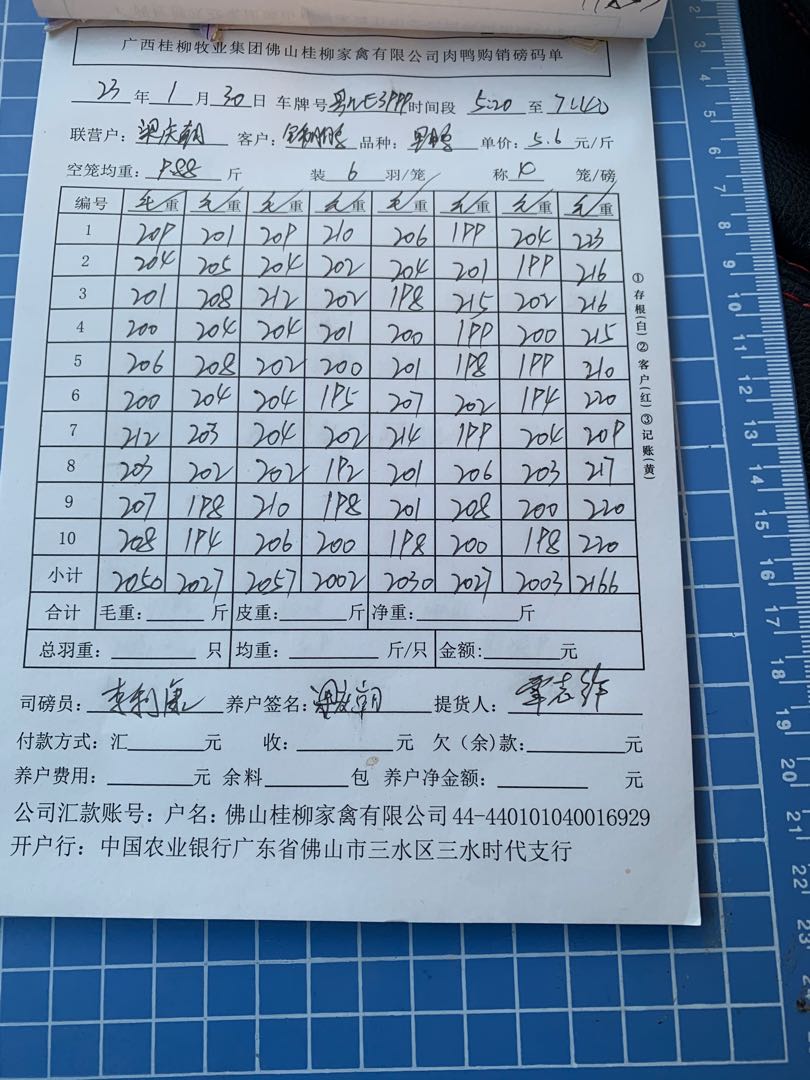 广西桂柳牧业集团佛山桂柳家禽有限公司肉鸭购销磅码单
23 年 1 月 30 日 车牌号 时间段 5:20 至 7:40
联营户: 梁庆朝 客户: 品种: 单价: 5.6 元/斤
空笼均重: 9.88 斤 装 6 羽/笼 称 10 笼/磅
编号 毛/重 毛/重 毛/重 毛/重 毛/重 毛/重 毛/重 毛/重
1 209 201 209 210 206 199 204 223
2 204 205 204 202 204 201 199 216
3 201 208 212 202 198 215 202 216
4 200 204 204 201 200 199 200 215
5 206 208 202 200 201 198 199 210
6 200 204 204 195 207 202 194 220
7 212 203 204 202 214 199 204 209
8 203 202 202 192 201 206 203 217
9 207 198 210 198 201 208 200 220
10 208 194 206 200 198 200 198 220
小计 2050 2027 2057 2002 2030 2027 2003 2166
合计 毛重: 斤 皮重: 斤 净重: 斤
总羽重: 只 均重: 斤/只 金额: 元
①存根(白)②客户(红)③记账(黄)
司磅员: 李利康 养户签名: 梁庆朝 提货人:
付款方式: 汇 元 收: 元 欠(余)款: 元
养户费用: 元 余料 包 养户净金额: 元
公司汇款账号: 户名: 佛山桂柳家禽有限公司 44-440101040016929
开户行: 中国农业银行广东省佛山市三水区三水时代支行